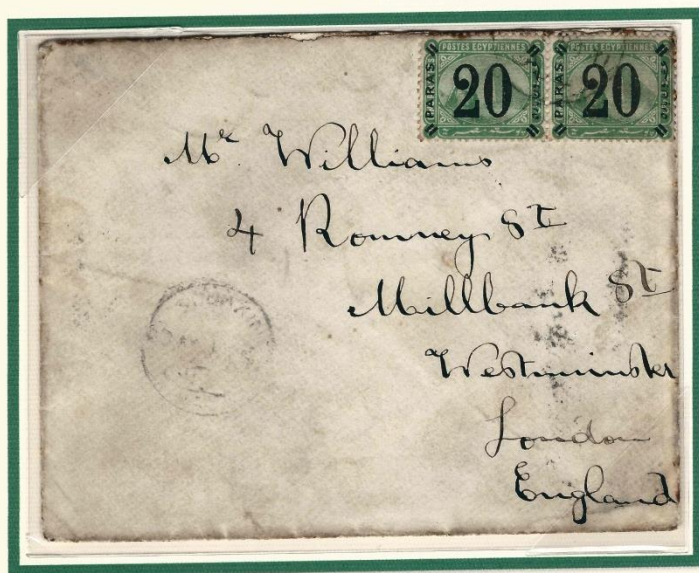 POSTES EGYPTIENNES POSTES EGYPTIENNES
PARAS 20 PARAS 20
Mr Williams
4 Romney St
Millbank St
Westminster
London
England